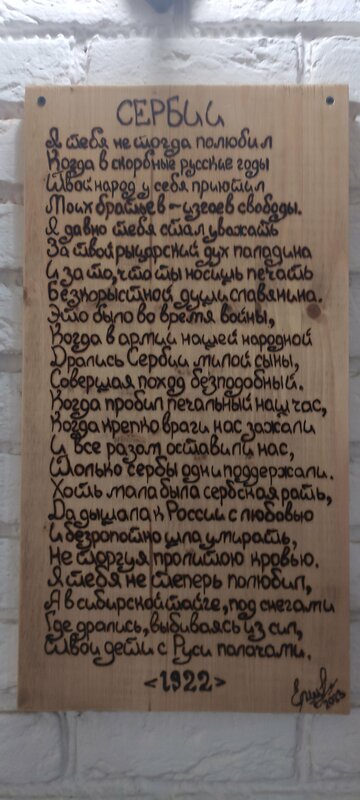 СЕРБИИ
Я тебя не тогда полюбил
Когда в скорбные русские годы
Твой народ у себя приютил
Моих братьев - изгоев свободы.
Я давно тебя стал уважать
За твой рыцарский дух паладина
И за то, что ты носишь печать
Безкорыстной души славянина.
Это было во время войны,
Когда в армии нашей народной
Дрались Сербии милой сыны,
Совершая поход безподобный.
Когда пробил печальный наш час,
Когда крепко враги нас зажали
И все разом оставили нас,
Только сербы одни поддержали.
Хоть мала была сербская рать,
Да дышала к России с любовью
И безропотно шла умирать,
Не торгуя пролитою кровью.
Я тебя не теперь полюбил,
А в сибирской тайге, под снегами
Где дрались, выбиваясь из сил,
Твои дети с Руси палачами.
<1922>
2023